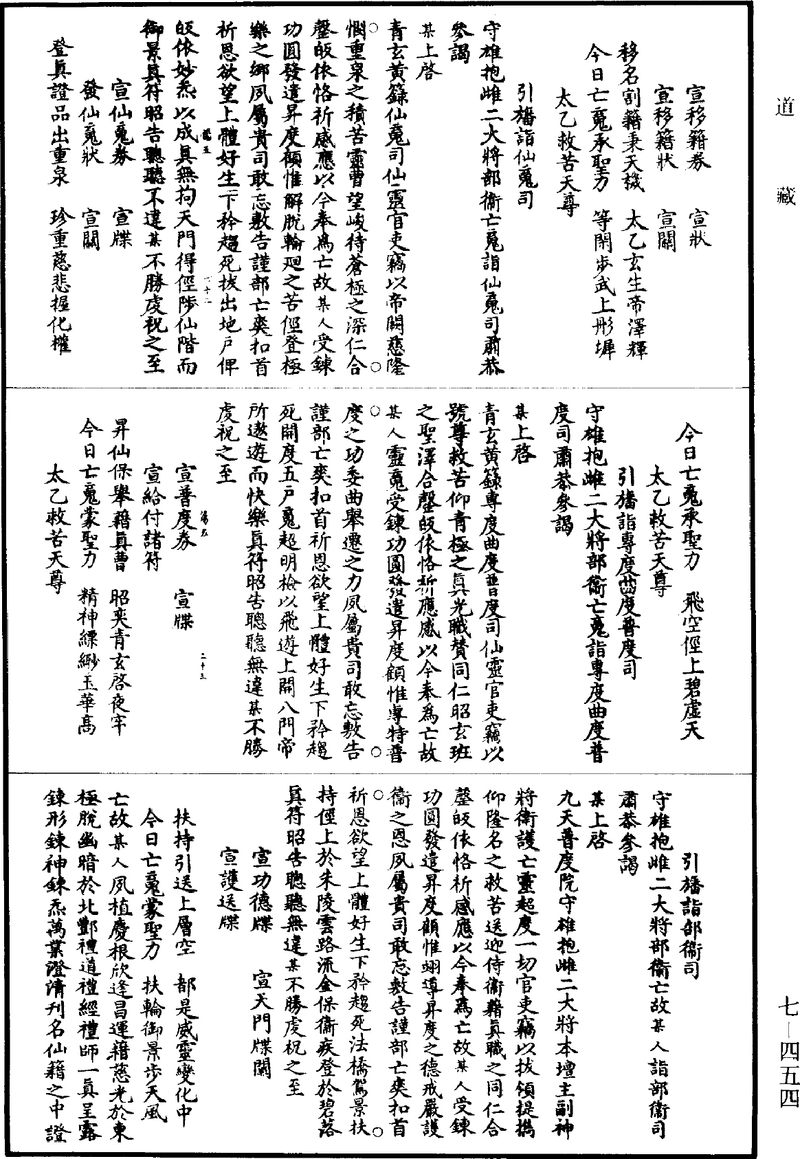 道藏
宣移籍券　宣狀
宣移籍狀　宣關
移名割籍秉天機　太乙玄生帝澤輝
今日亡䰟承聖力　等閑步武上彤墀
太乙救苦天尊
引旛詣仙䰟司
守雄抱雌二大將部衞亡䰟詣仙䰟司肅恭
參謁
某上啓
青玄黃籙仙䰟司仙靈官吏竊以帝闕慈隆
憫重泉之積苦靈曹望峻待蒼極之深仁合
罄皈依恪祈感應以今奉為亡故某人受鍊
功圓發遣昇度顧惟解脫輪廻之苦徑登極
樂之鄉夙屬貴司敢忘敷告謹部亡爽扣首
祈恩欲望上體好生下矜趨死拔出地戶俾
皈依妙炁以成真無拘天門得徑陟仙階而
御景真符昭告聰聽不違某不勝虔祝之至
宣仙䰟券　宣牒
發仙䰟狀　宣關
登真證品出重泉　珍重慈悲握化權
今日亡䰟承聖力　飛空徑上碧虛天
太乙救苦天尊
引旛詣專度曲度普度司
守雄抱雌二大將部衞亡䰟詣專度曲度普
度司肅恭參謁
某上啓
青玄黃籙專度曲度普度司仙靈官吏竊以
號尊救苦仰青極之真光職贊同仁昭玄班
之聖澤合罄皈依恪祈應感以今奉為亡故
某人靈䰟受鍊功圓發遣昇度顧惟專特普
度之功委曲舉遷之力夙屬貴司敢忘敷告
謹部亡爽扣首祈恩欲望上體好生下矜趨
死開度五戶䰟超明檢以飛遊上開八門帝
所遨遊而快樂真符昭告聰聽無違某不勝
虔祝之至
宣普度券　宣牒
宣給付諸符
昇仙保舉籍真曹　昭奕青玄啓夜牢
今日亡䰟蒙聖力　精神縹緲玉華高
太乙救苦天尊
引旛詣部衞司
守雄抱雌二大將部衞亡故某人詣部衞司
肅恭參謁
某上啓
九天普度院守雄抱雌二大將本壇主副神
將衞護亡靈超度一切官吏竊以拔領提攜
仰隆名之救苦送迎侍衞藉真職之同仁合
罄皈依恪祈感應以今奉為亡故某人受鍊
功圓發遣昇度顧惟翊導昇度之德戒嚴護
衞之恩夙屬貴司敢忘敷告謹部亡爽扣首
祈恩欲望上體好生下矜趨死法橋駕景扶
持徑上於朱陵雲路流金保衞疾登於碧落
真符昭告聰聽無違某不勝虔祝之至
宣功德牒　宣天門牒關
宣護送牒
扶持引送上層空　都是威靈變化中
今日亡䰟蒙聖力　扶輪御景步天風
亡故某人夙植慶根欣逢昌運籍慈光於東
極脫幽暗於北酆禮道禮經禮師一真呈露
鍊形鍊神鍊炁萬業澄清刊名仙籍之中證
七－四五四